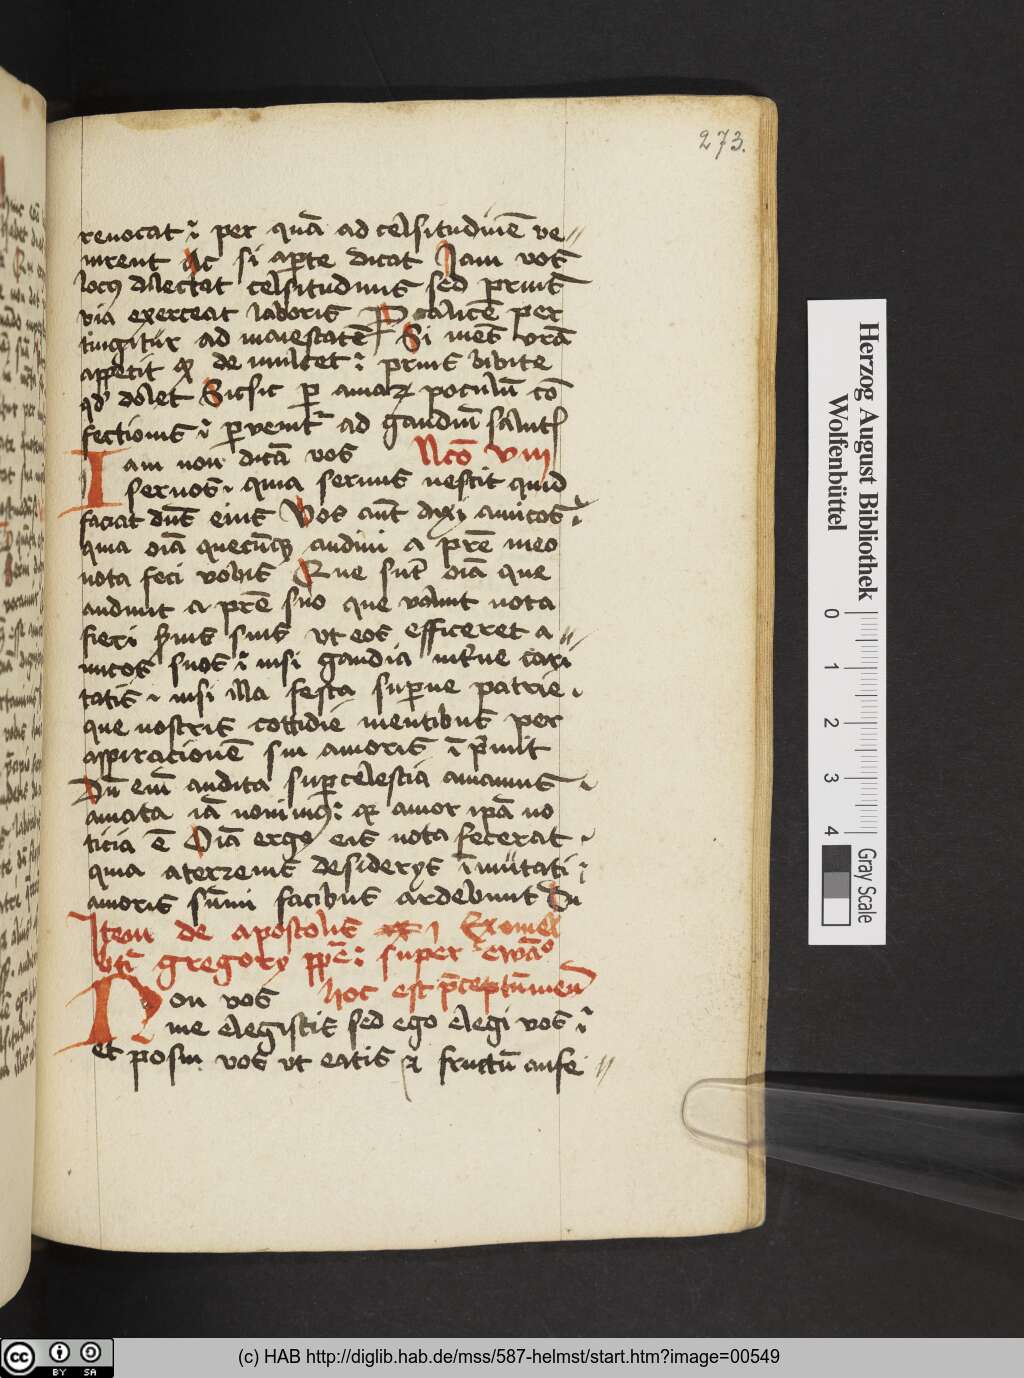 273.
reuocat ⁊ per quā ad celsitudinē ve//
nirent Ac si aꝑte dicat Jam vos
locꝰ delectat celsitudinis sed prius
via exerceat laboris Per calicē per
tingitur ad maiestatē Si mēs vrā
appetit qd demulcet ⁊ prius bibite
qd dolet Sicsic ꝑ amaꝝ poculū cō
fectionis ⁊ ꝑuenitr ad gaudiū salutꝭ
Iam non dicā vos Lcō viii
seruos · quia seruus nescit quid
faciat dn̄s eius Vos aūt dixi amicos ⁊
quia oīa quecūqꝫ audiui a pr̄e meo
nota feci vobis Que sūt oīa que
audiuit a pr̄e suo que voluit nota
fieri ẜuis suis vt eos efficeret a//
micos suos ⁊ nisi gaudia int̄ne cari
tatis · nisi illa festa suꝑne patrie ·
que nostris cottidie mentibus per
aspiracionē sui amoris īp̄mit
Dū eī audita suꝑcelestia amamus ·
amata iā nouimꝰ ⁊ qꝛ amor ipā no
ticia ē Oīa ergo eis nota fecerat ·
quia a terrenis desiderijs īmutati ·
amoris sūmi facibus ardebant
Item de apostolis Ex omel
gregorij pp̄e ⁊ super ewāo
Non vos hoc est p̄ceptū meū
me elegistis sed ego elegi vos ⁊
et posui vos vt eatis ⁊ fructū affe//
Herzog August Bibliothek
Wolfenbüttel
0 1 2 3 4
Gray Scale
cc BY SA
(c) HAB http://diglib.hab.de/mss/587-helmst/start.htm?image=00549